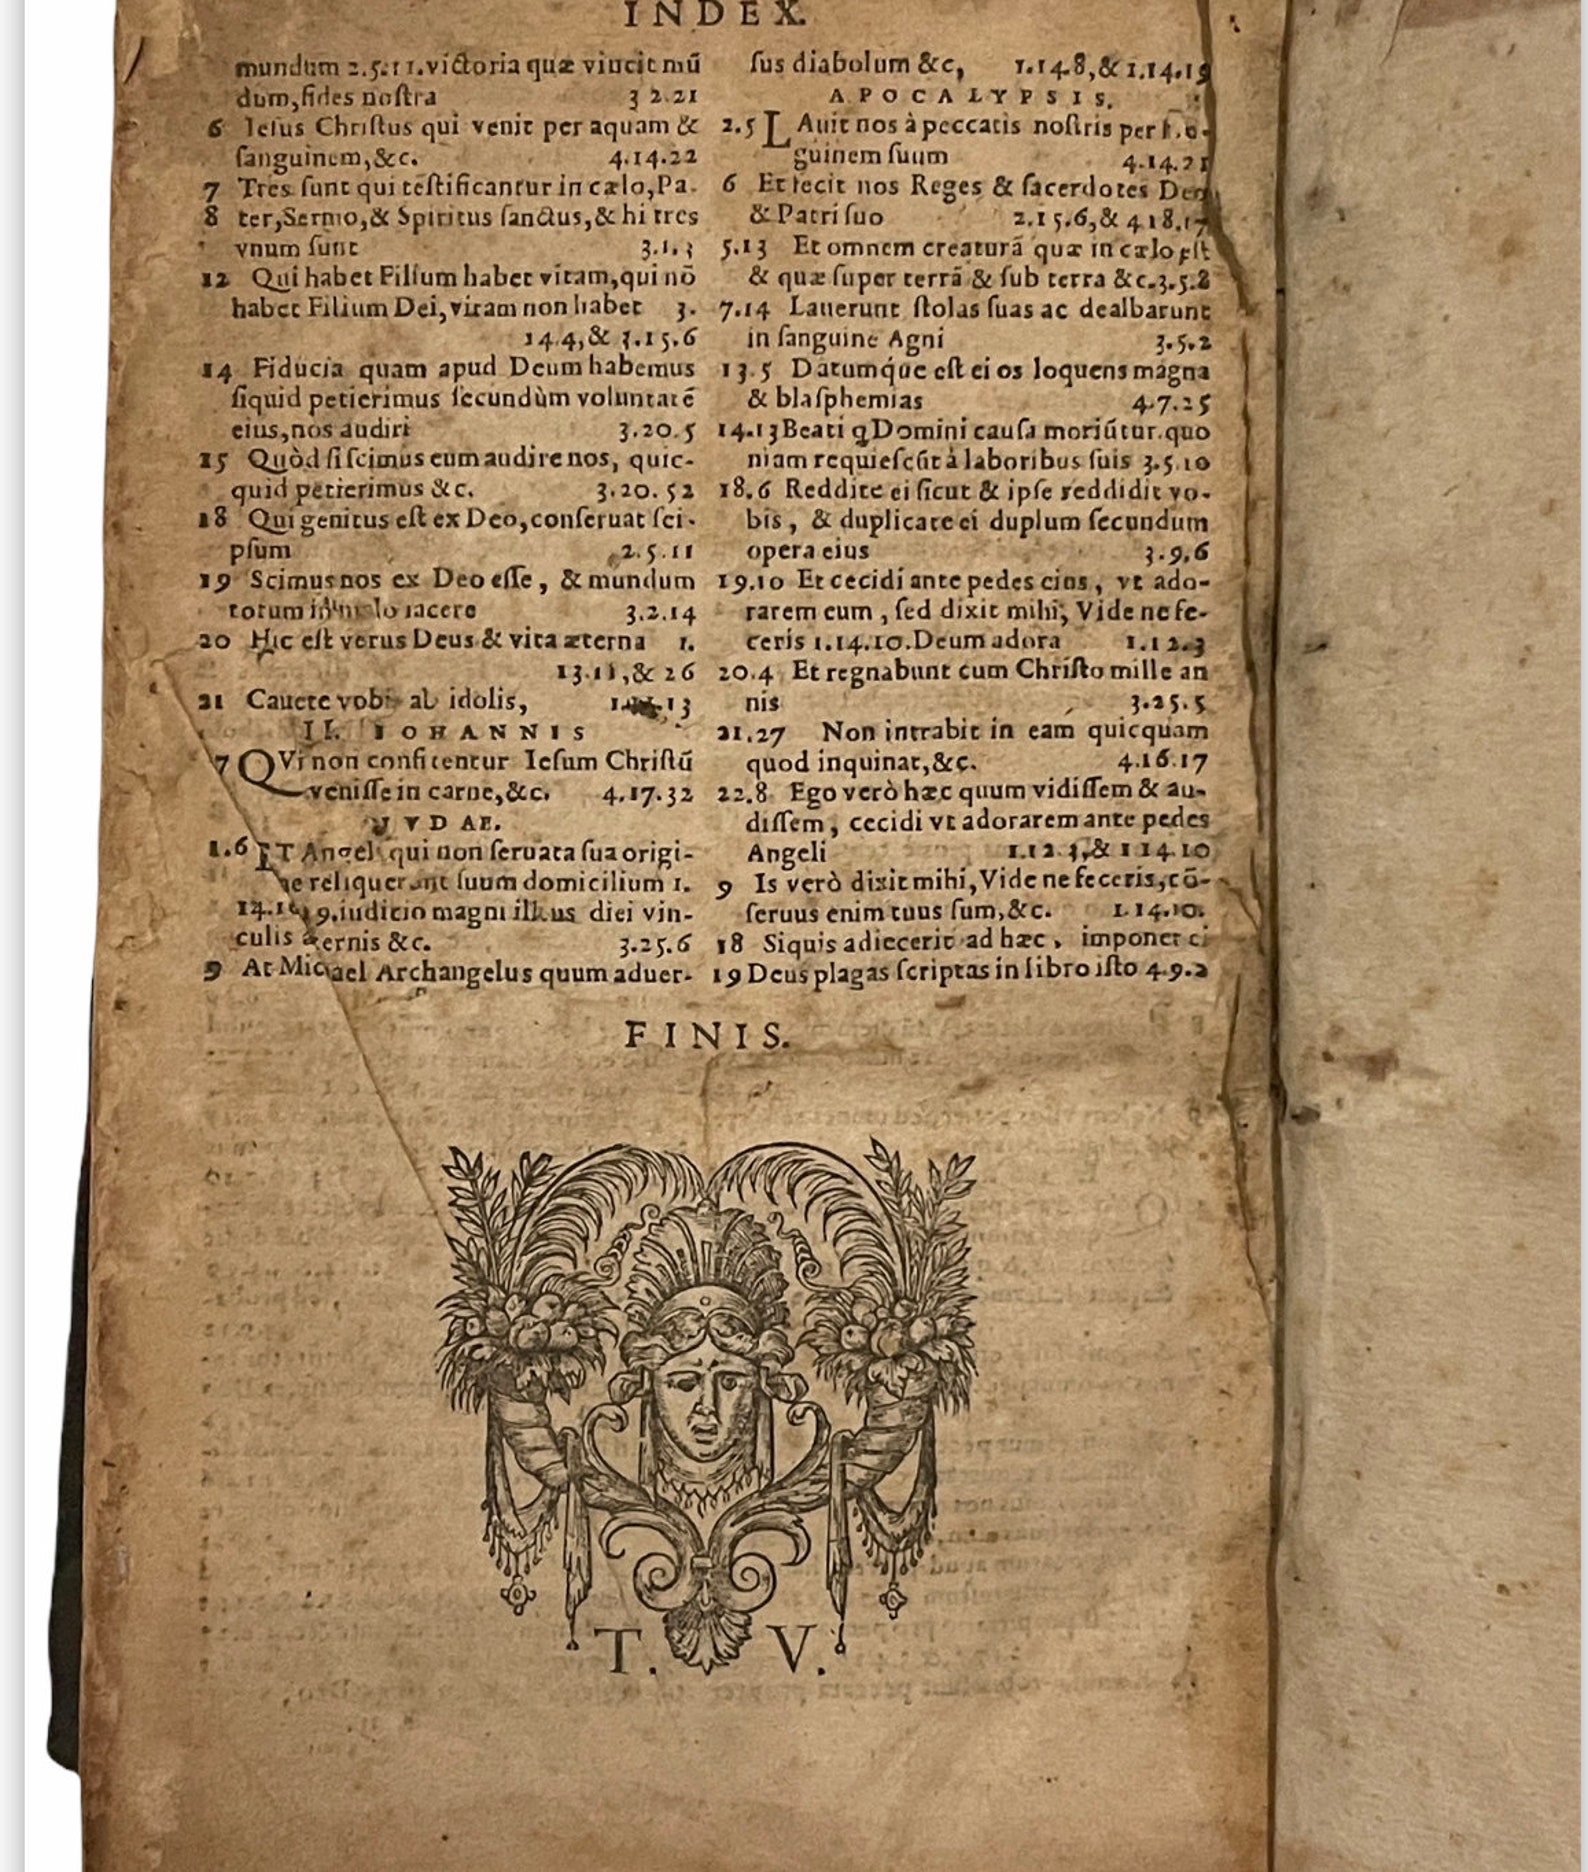 INDEX.
mundum 2.5.11. victoria quæ vincit mũ
dum, fides noſtra 3 2.21
6 Ieſus Chriſtus qui venit per aquam &
ſanguinem, &c. 4.14.22
7 Tres ſunt qui teſtificantur in cælo, Pa-
8 ter, Sermo, & Spiritus ſanctus, & hi tres
vnum ſunt 3.1.3
12 Qui habet Filium habet vitam, qui nõ
habet Filium Dei, vitam non habet 3.
14.4, & 3.15.6
14 Fiducia quam apud Deum habemus
ſiquid petierimus ſecundùm voluntatẽ
eius, nos audiri 3.20.5
15 Quòd ſi ſcimus eum audire nos, quic-
quid petierimus &c. 3.20.52
18 Qui genitus eſt ex Deo, conſeruat ſei-
pſum 2.5.11
19 Scimus nos ex Deo eſſe, & mundum
totum in malo iacere 3.2.14
20 Hic eſt verus Deus & vita æterna 1.
13.11, & 26
21 Cauete vobis ab idolis, 13
II. IOHANNIS
7 QVi non confitentur Ieſum Chriſtũ
veniſſe in carne, &c. 4.17.32
IVDAE.
1.6 ET Angeli qui non ſeruata ſua origi-
ne reliquerunt ſuum domicilium 1.
14.16 9. iudicio magni illius diei vin-
culis æternis &c. 3.25.6
9 At Michael Archangelus quum aduer-
ſus diabolum &c, 1.14.8, & 1.14.19
APOCALYPSIS.
2.5 LAuit nos à peccatis noſtris per
guinem ſuum 4.14.21
6 Et fecit nos Reges & ſacerdotes Deo
& Patri ſuo 2.15.6, & 4 18.17
5.13 Et omnem creaturã quæ in cælo eſt
& quæ ſuper terrã & ſub terra &c. 3.5.8
7.14 Lauerunt ſtolas ſuas ac dealbarunt
in ſanguine Agni 3.5.2
13.5 Datumq́ue eſt ei os loquens magna
& blaſphemias 4.7.25
14.13 Beati q Domini cauſa moriũtur. quo
niam requieſcũt à laboribus ſuis 3.5.10
18.6 Reddite ei ſicut & ipſe reddidit vo-
bis, & duplicate ei duplum ſecundum
opera eius 3.9.6
19.10 Et cecidi ante pedes eius, vt ado-
rarem eum, ſed dixit mihi, Vide ne fe-
ceris 1.14.10. Deum adora 1.12.3
20.4 Et regnabunt cum Chriſto mille an
nis 3.25.5
21.27 Non intrabit in eam quicquam
quod inquinat, &c. 4.16.17
22.8 Ego verò hæc quum vidiſſem & au-
diſſem, cecidi vt adorarem ante pedes
Angeli 1.12 3, & 1 14.10
9 Is verò dixit mihi, Vide ne feceris, cõ-
ſeruus enim tuus ſum, &c. 1.14.10.
18 Siquis adiecerit ad hæc, imponet ei
19 Deus plagas ſcriptas in libro iſto 4.9.2
FINIS.
T. V.